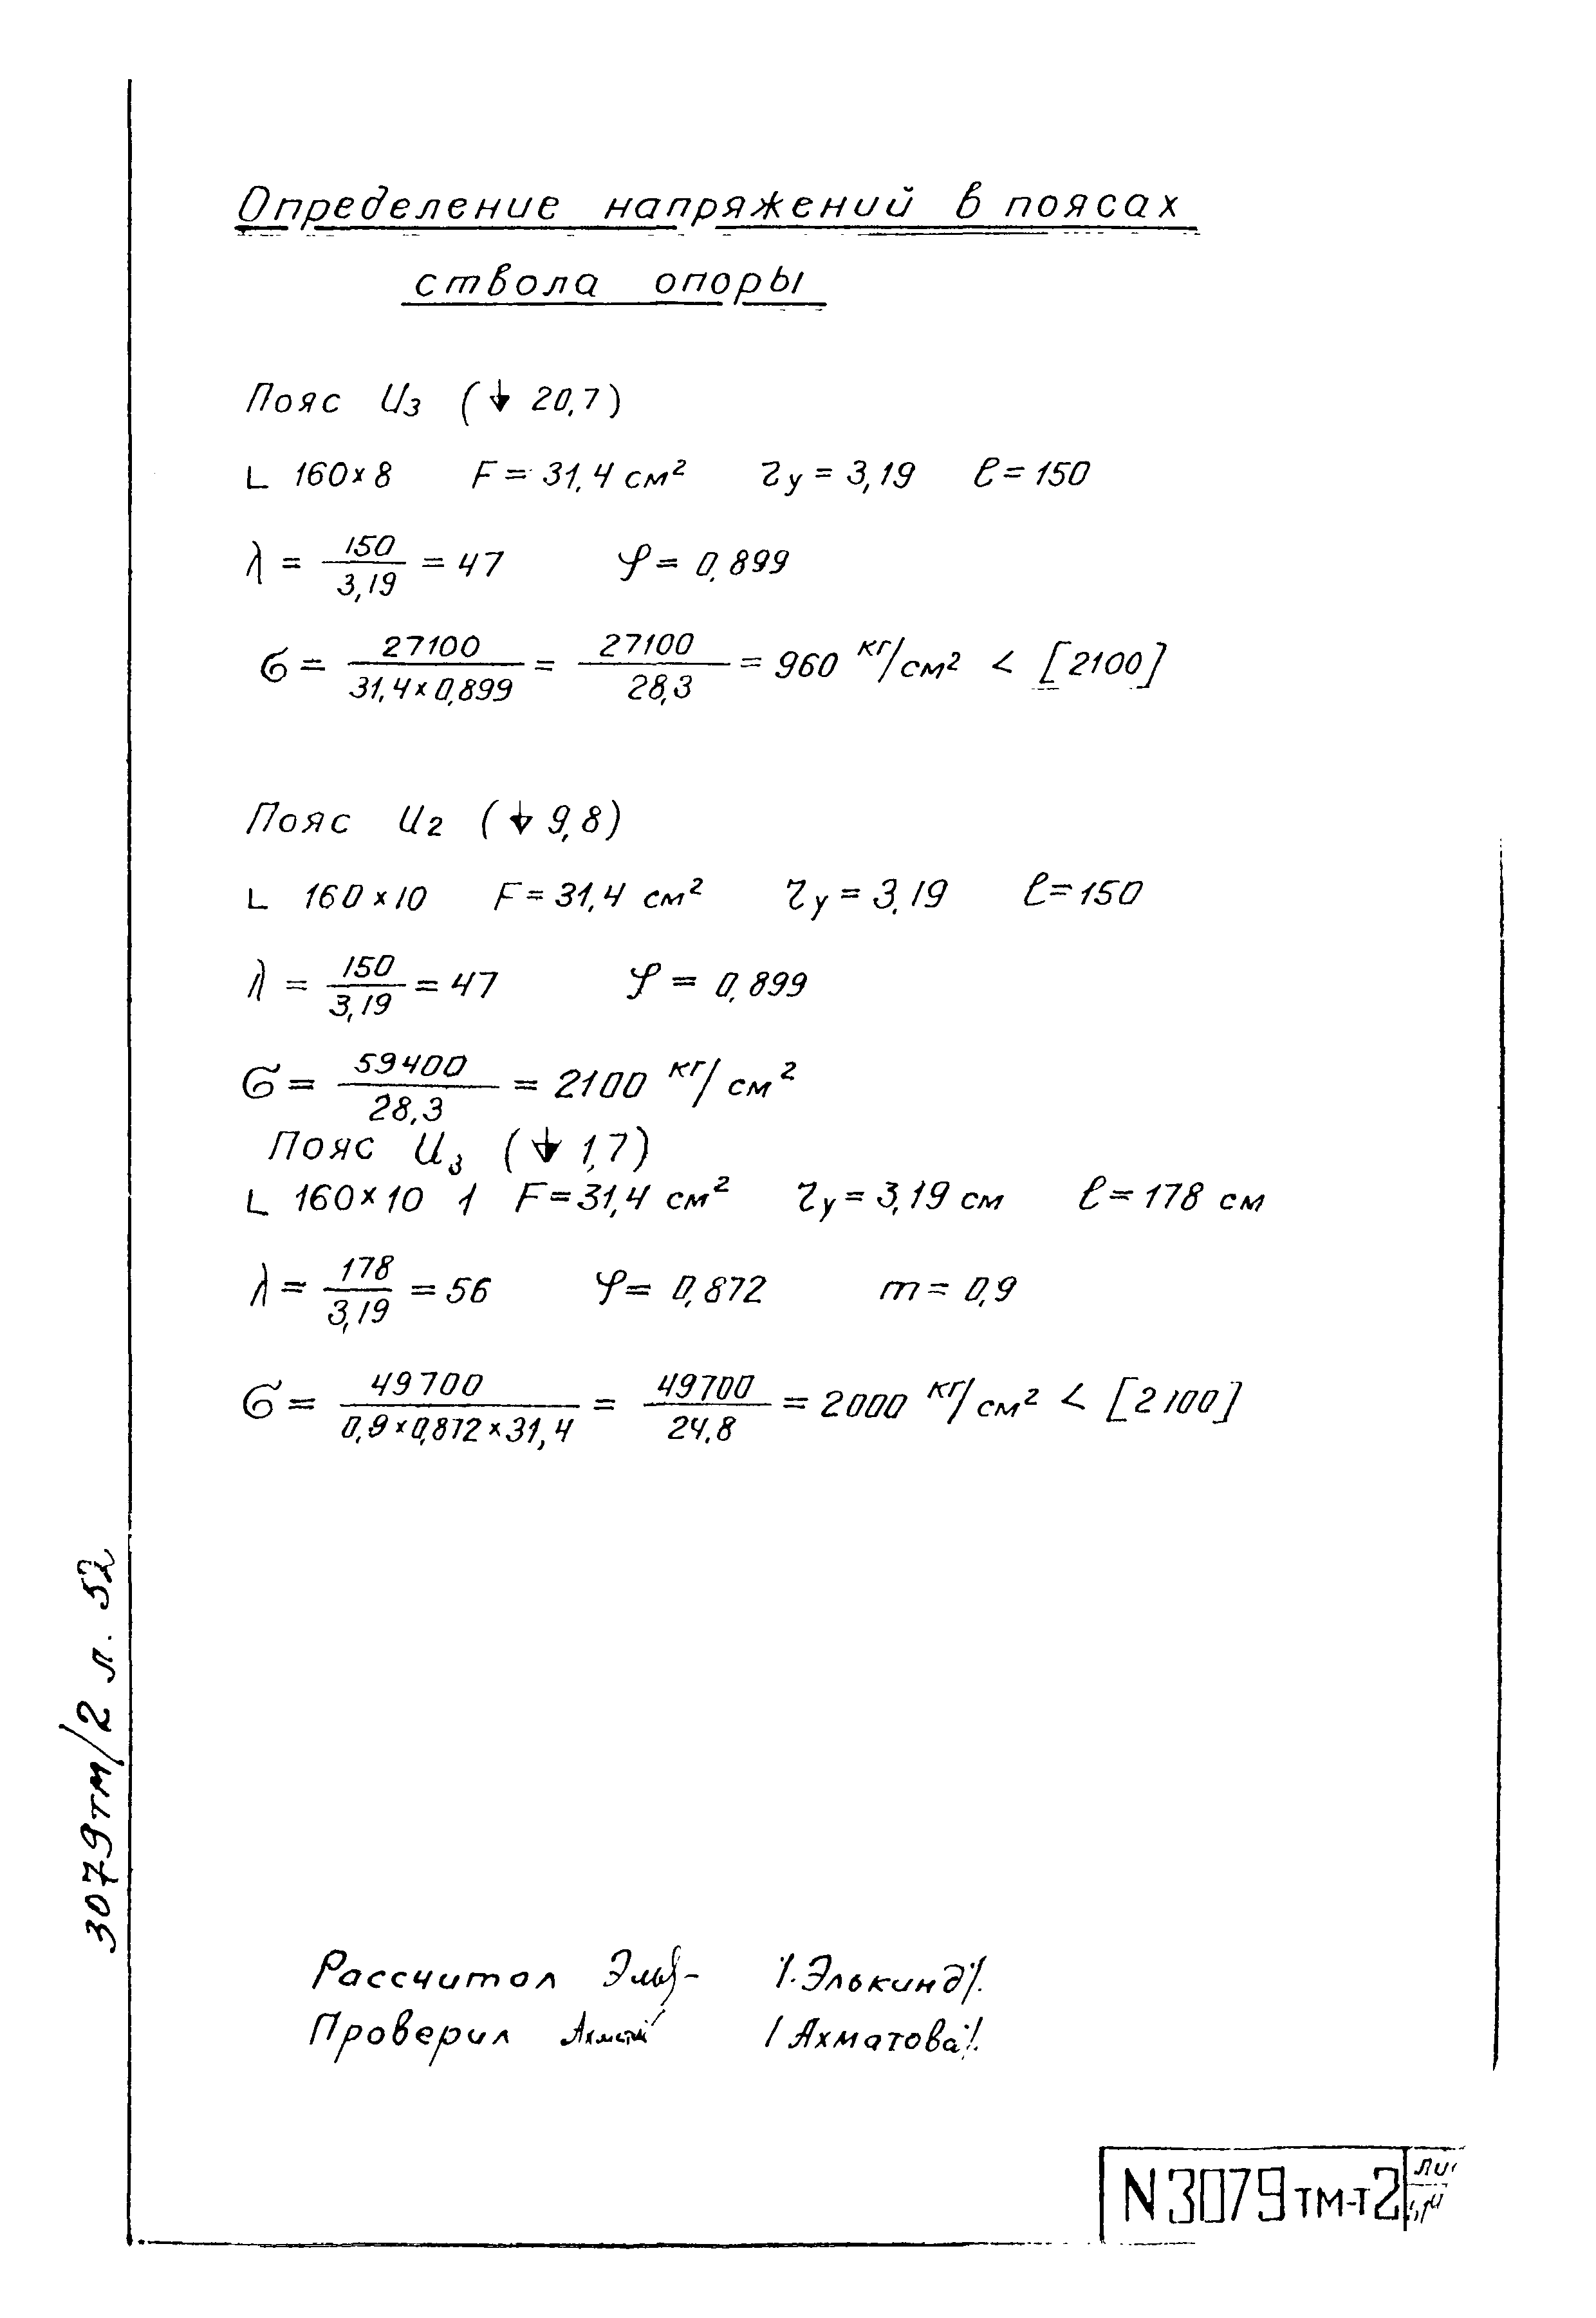 Определение напряжений в поясах
ствола опоры
Пояс U3 (↓ 20,7)
L 160×8 F = 31,4 см² ry = 3,19 ℓ = 150
λ = 150/3,19 = 47 φ = 0,899
σ = 27100/31,4×0,899 = 27100/28,3 = 960 кг/см² < [2100]
Пояс U2 (↓ 9,8)
L 160×10 F = 31,4 см² ry = 3,19 ℓ = 150
λ = 150/3,19 = 47 φ = 0,899
σ = 59400/28,3 = 2100 кг/см²
Пояс U3 (↓ 1,7)
L 160×10 1 F = 31,4 см² ry = 3,19 см ℓ = 178 см
λ = 178/3,19 = 56 φ = 0,872 m = 0,9
σ = 49700/0,9×0,872×31,4 = 49700/24,8 = 2000 кг/см² < [2100]
3079тм/2 л. 52
Рассчитол /.Элькинд/.
Проверил /Ахматова/.
N3079тм-т2